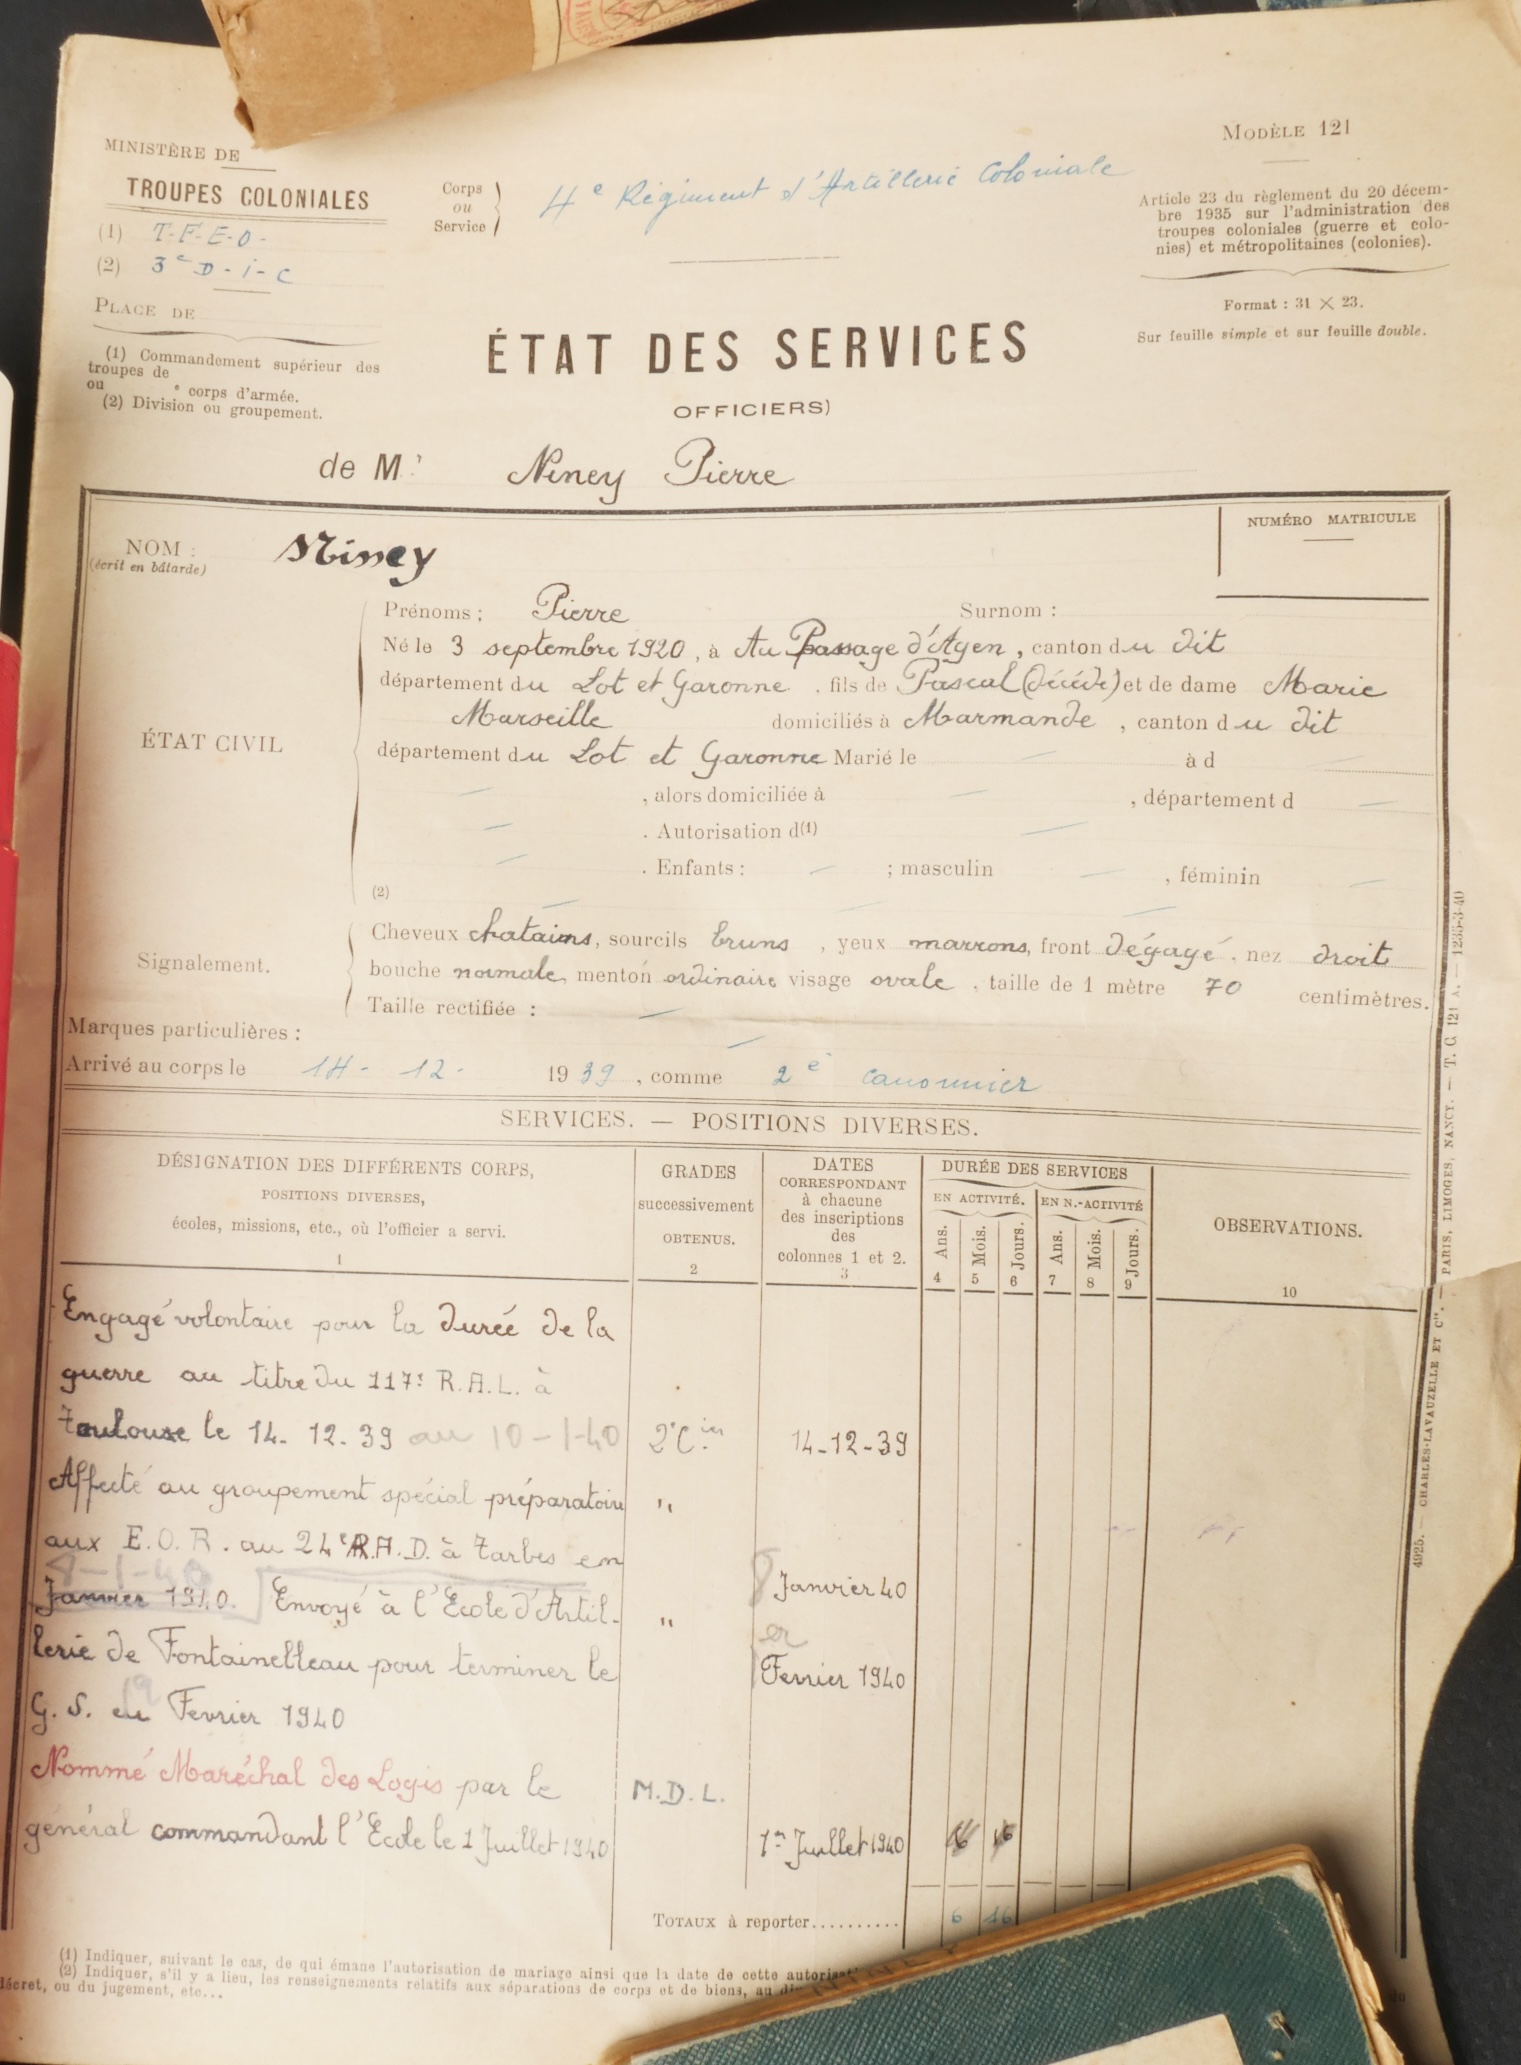 MINISTÈRE DE
TROUPES COLONIALES
(1) T-F-E-O-
(2) 3e D-i-C
PLACE DE
(1) Commandement supérieur des
troupes de
ou e corps d'armée.
(2) Division ou groupement.
Corps
ou
Service
4e Régiment d'Artillerie Coloniale
MODÈLE 121
Article 23 du règlement du 20 décem-
bre 1935 sur l'administration des
troupes coloniales (guerre et colo-
nies) et métropolitaines (colonies).
Format : 31 × 23.
Sur feuille simple et sur feuille double.
ÉTAT DES SERVICES
OFFICIERS)
de M. Niney Pierre
NUMÉRO MATRICULE
NOM : Niney
(écrit en bâtarde)
ÉTAT CIVIL
Prénoms : Pierre Surnom :
Né le 3 septembre 1920, à Au Passage d'Agen, canton du dit
département du Lot et Garonne, fils de Pascal (décédé) et de dame Marie
Marseille domiciliés à Marmande, canton du dit
département du Lot et Garonne Marié le — à d —
— , alors domiciliée à — , département d —
— . Autorisation d(1) —
— . Enfants : — ; masculin — , féminin —
(2) — — —
Signalement.
Cheveux chatains, sourcils bruns, yeux marrons, front dégagé, nez droit
bouche normale, menton ordinaire visage ovale, taille de 1 mètre 70 centimètres.
Taille rectifiée : —
Marques particulières : —
Arrivé au corps le 14- 12- 1939, comme 2e canonnier
SERVICES. — POSITIONS DIVERSES.
DÉSIGNATION DES DIFFÉRENTS CORPS,
POSITIONS DIVERSES,
écoles, missions, etc., où l'officier a servi.
1
GRADES
successivement
OBTENUS.
2
DATES
CORRESPONDANT
à chacune
des inscriptions
des
colonnes 1 et 2.
3
DURÉE DES SERVICES
EN ACTIVITÉ. EN N.-ACTIVITÉ
Ans. Mois. Jours. Ans. Mois. Jours.
4 5 6 7 8 9
OBSERVATIONS.
10
Engagé volontaire pour la durée de la
guerre au titre du 117e R.A.L. à
Toulouse le 14. 12. 39 au 10-1-40 2e Cier 14-12-39
Affecté au groupement spécial préparatoire "
aux E.O.R. au 24e R.A.D. à Tarbes en
8-1-40
Janvier 1940. Envoyé à l'Ecole d'Artil- " 8 Janvier 40
lerie de Fontainebleau pour terminer le er Fevrier 1940
G. S. en Fevrier 1940
Nommé Maréchal des Logis par le M.D.L.
général commandant l'Ecole le 1 Juillet 1940 1er Juillet 1940 6 16
TOTAUX à reporter.......... 6 16
(1) Indiquer, suivant le cas, de qui émane l'autorisation de mariage ainsi que la date de cette autoris
(2) Indiquer, s'il y a lieu, les renseignements relatifs aux séparations de corps et de biens, au di
décret, ou du jugement, etc...
4925. — CHARLES-LAVAUZELLE ET Cie. — PARIS, LIMOGES, NANCY. — T. C. 121 A. — 1235-3-40